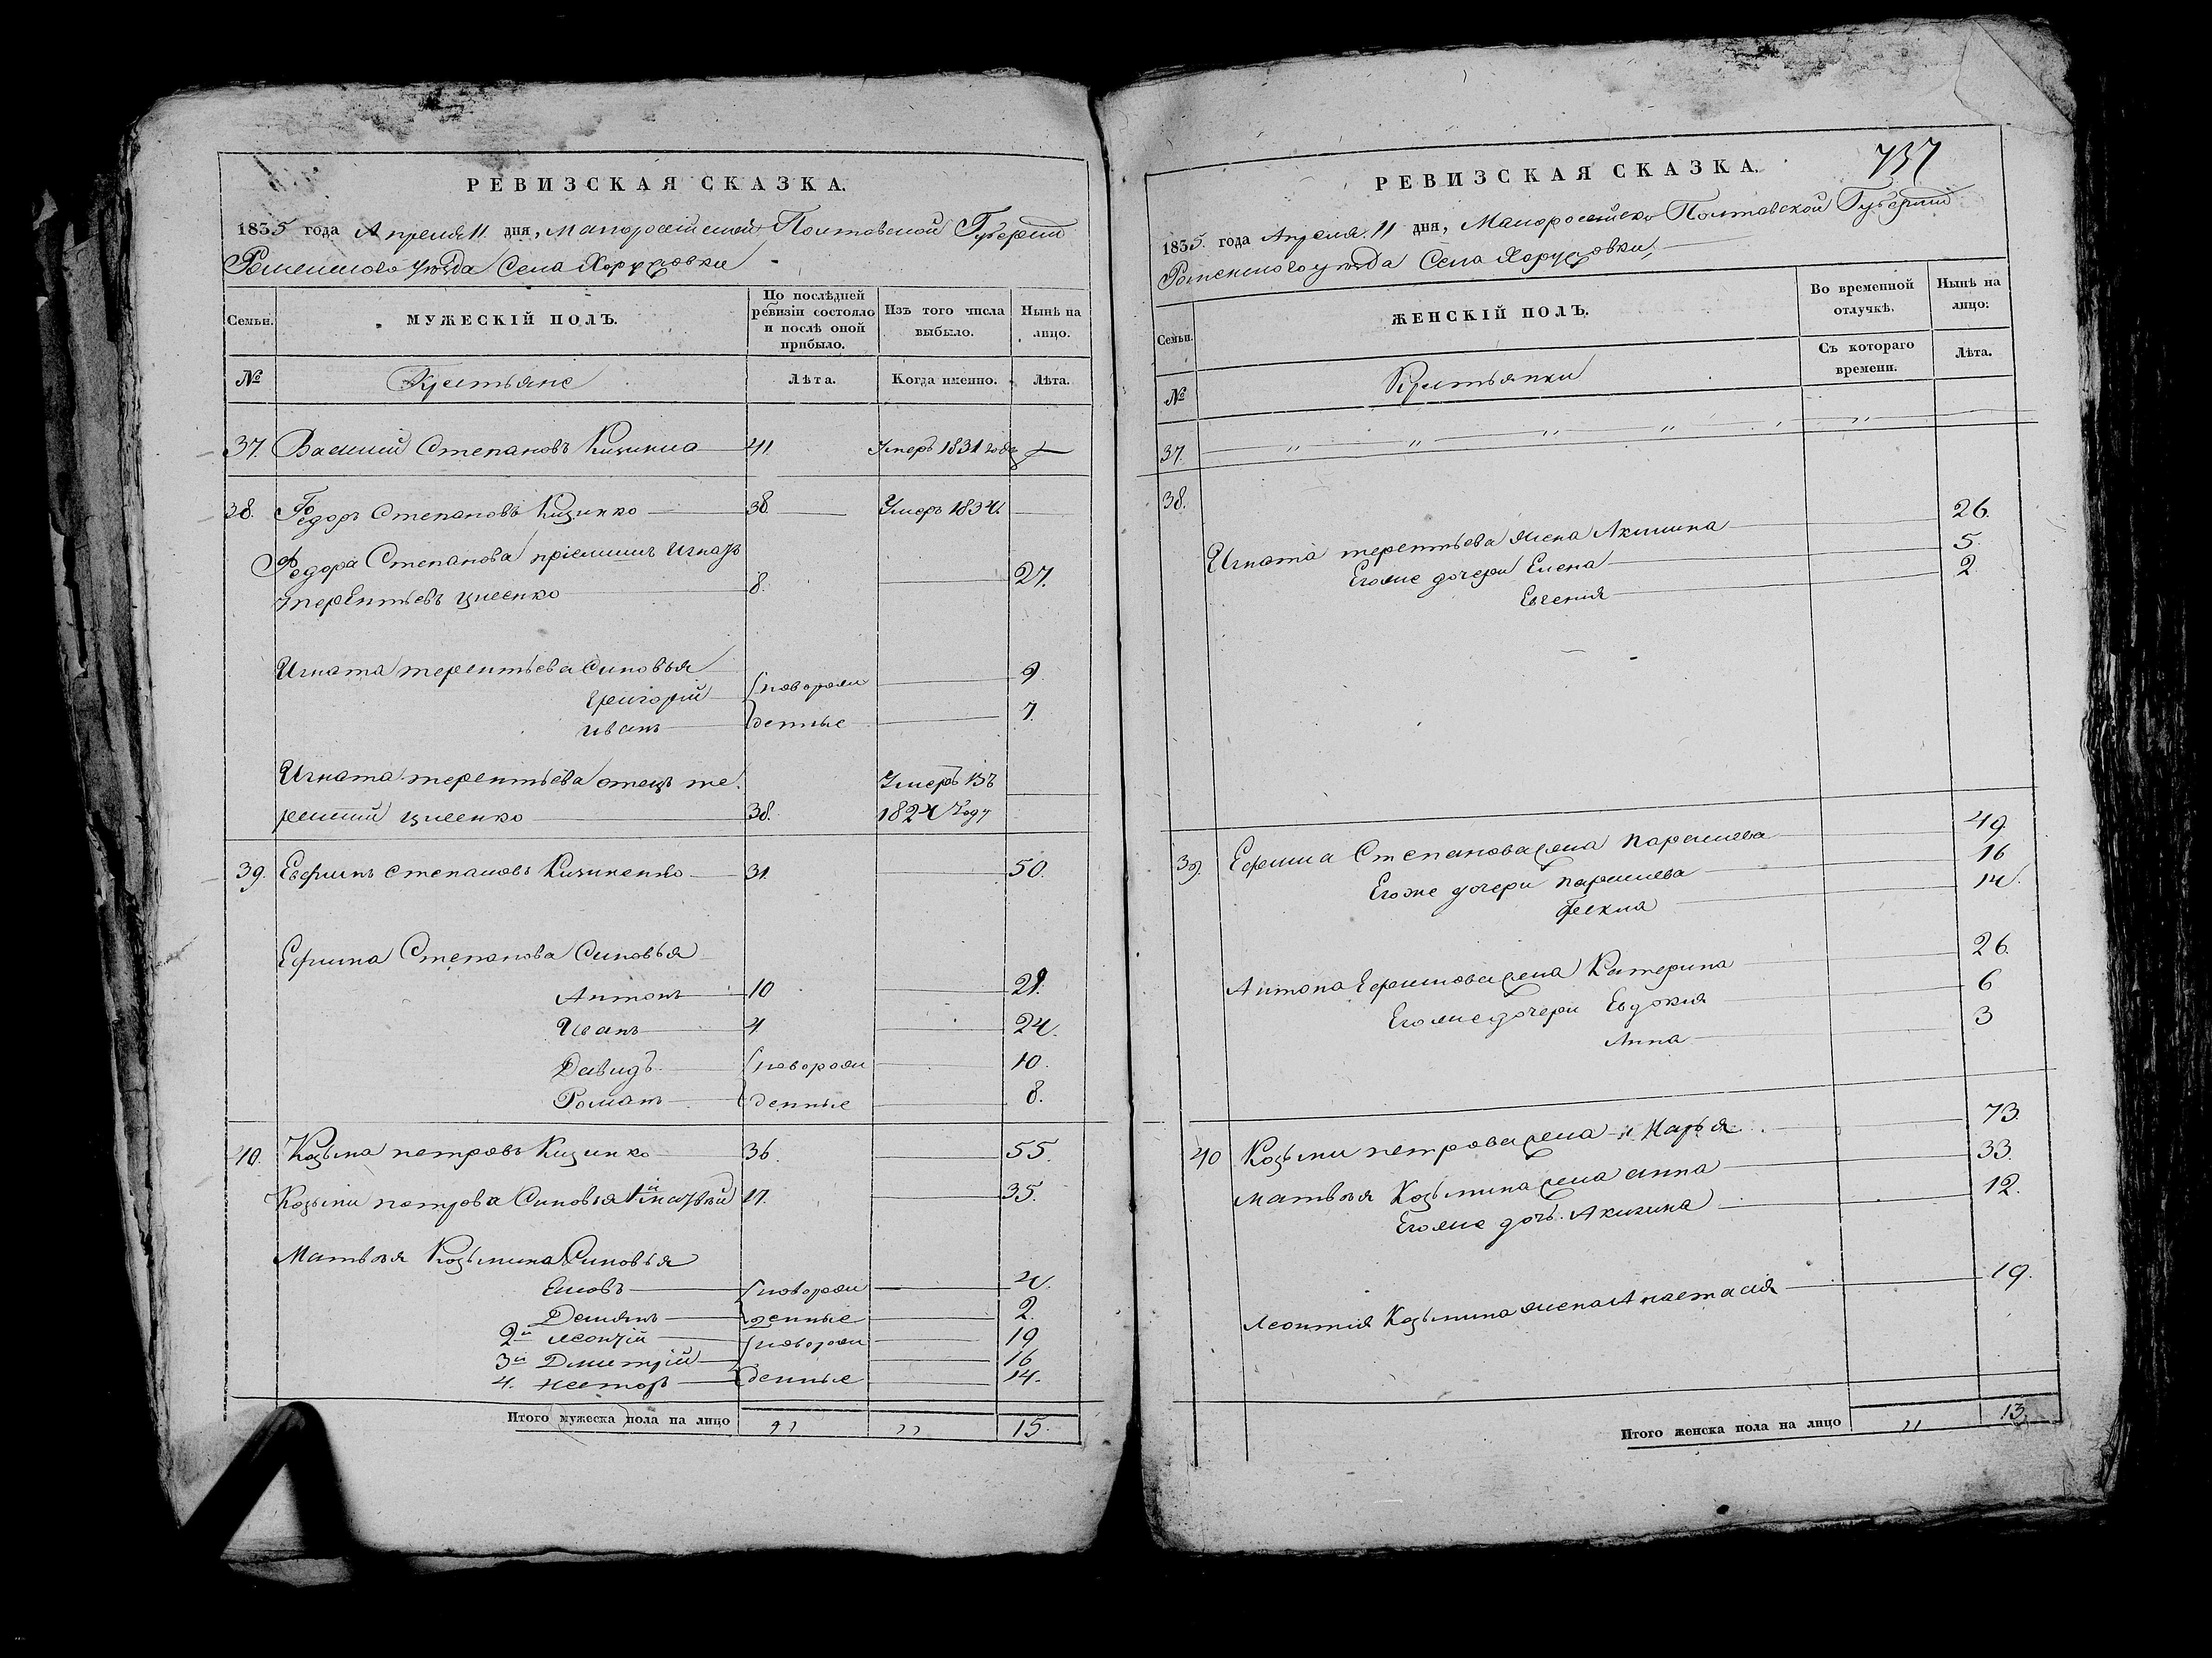 РЕВИЗСКАЯ СКАЗКА.
1835 года Апреля 11 дня, Малоросійской Полтавской Губерніи
Роменского уѣзда Села Хоружовки
Семьи.
МУЖЕСКІЙ ПОЛЪ.
По послѣдней ревизіи состояло и послѣ оной прибыло.
Изъ того числа выбыло.
Нынѣ на лицо.
№
Крестьяне
Лѣта.
Когда именно.
Лѣта.
37. Василий Степановъ 41. Умеръ 1831 года
38. Федоръ Степановъ 38. Умеръ 1834.
Федора Степанова пріемишъ Игнатъ
терентьевъ 8. 27.
Игната терентьева Сыновья
Григорій новорож 9.
иванъ денные 7.
Игната терентьева отецъ те-
рентий 38. Умеръ въ 1824 Году
39. Евфимъ Степановъ 31. 50.
Ефима Степанова Сыновья
Антонъ 10 29.
Иванъ 4 24.
Давидъ новорож 10.
Романъ денные 8.
40. Козьма петровъ 36. 55.
Козьми петрова Сыновья 1й матвѣй 17. 35.
Матвѣя Козьмина Сыновья
новорож 4.
Демянъ денные 2.
2й леонтій новорож 19
3й Дмитрій 16
4. несторъ денные 14.
Итого мужеска пола на лицо " " 15.
737
РЕВИЗСКАЯ СКАЗКА.
1835. года Апреля. 11 дня, Малоросійско Полтавской Губерніи
Роменского уѣзда Села Хоружовки,
Семьи.
ЖЕНСКІЙ ПОЛЪ.
Во временной отлучкѣ.
Нынѣ на лицо:
№
Крестьянки
Съ котораго времени.
Лѣта.
37. " " " " "
38.
Игната терентьева жена Акилина 26.
Егоже дочери Елена 5.
Евгенія 2.
39. Ефима Степанова жена параскева 49
Егоже дочери параскева 16
Фекла 14.
Антона Ефимова жена Катерина 26.
Егоже дочери Евдокия 6
Анна 3
40 Козьми петрова жена Марья 73.
матвѣя Козьмина жена анна 33.
Егоже дочь. Акилина 12.
Леонтия Козьмина жена Анастасия 19.
Итого женска пола на лицо " 13